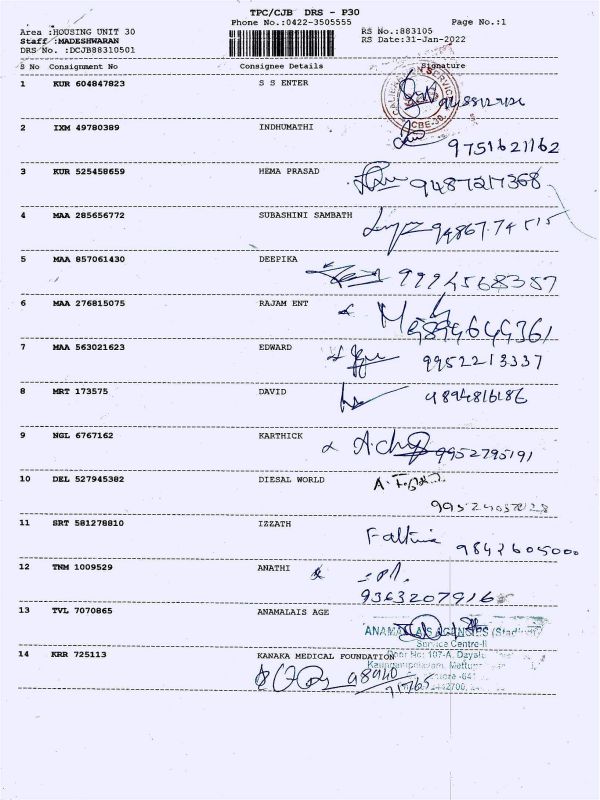 TPC/CJB DRS - P30
Phone No.:0422-3505555
Page No.:1
Area :HOUSING UNIT 30
RS No.:883105
Staff :MADESHWARAN
RS Date:31-Jan-2022
DRS No. :DCJB88310501
S No Consignment No Consignee Details Signature
1 KUR 604847823 S S ENTER
2 IXM 49780389 INDHUMATHI
9751621162
3 KUR 525458659 HEMA PRASAD
9487217368
4 MAA 285656772 SUBASHINI SAMBATH
94867 74515
5 MAA 857061430 DEEPIKA
9994568357
6 MAA 276815075 RAJAM ENT
9894644361
7 MAA 563021623 EDWARD
9952213337
8 MRT 173575 DAVID
9894816186
9 NGL 6767162 KARTHICK
9952795191
10 DEL 527945382 DIESAL WORLD
11 SRT 581278810 IZZATH
9842605000
12 TNM 1009529 ANATHI
9363207916
13 TVL 7070865 ANAMALAIS AGE
ANAMALAIS AGENCIES
Service Centre-II
14 KRR 725113 KANAKA MEDICAL FOUNDATION